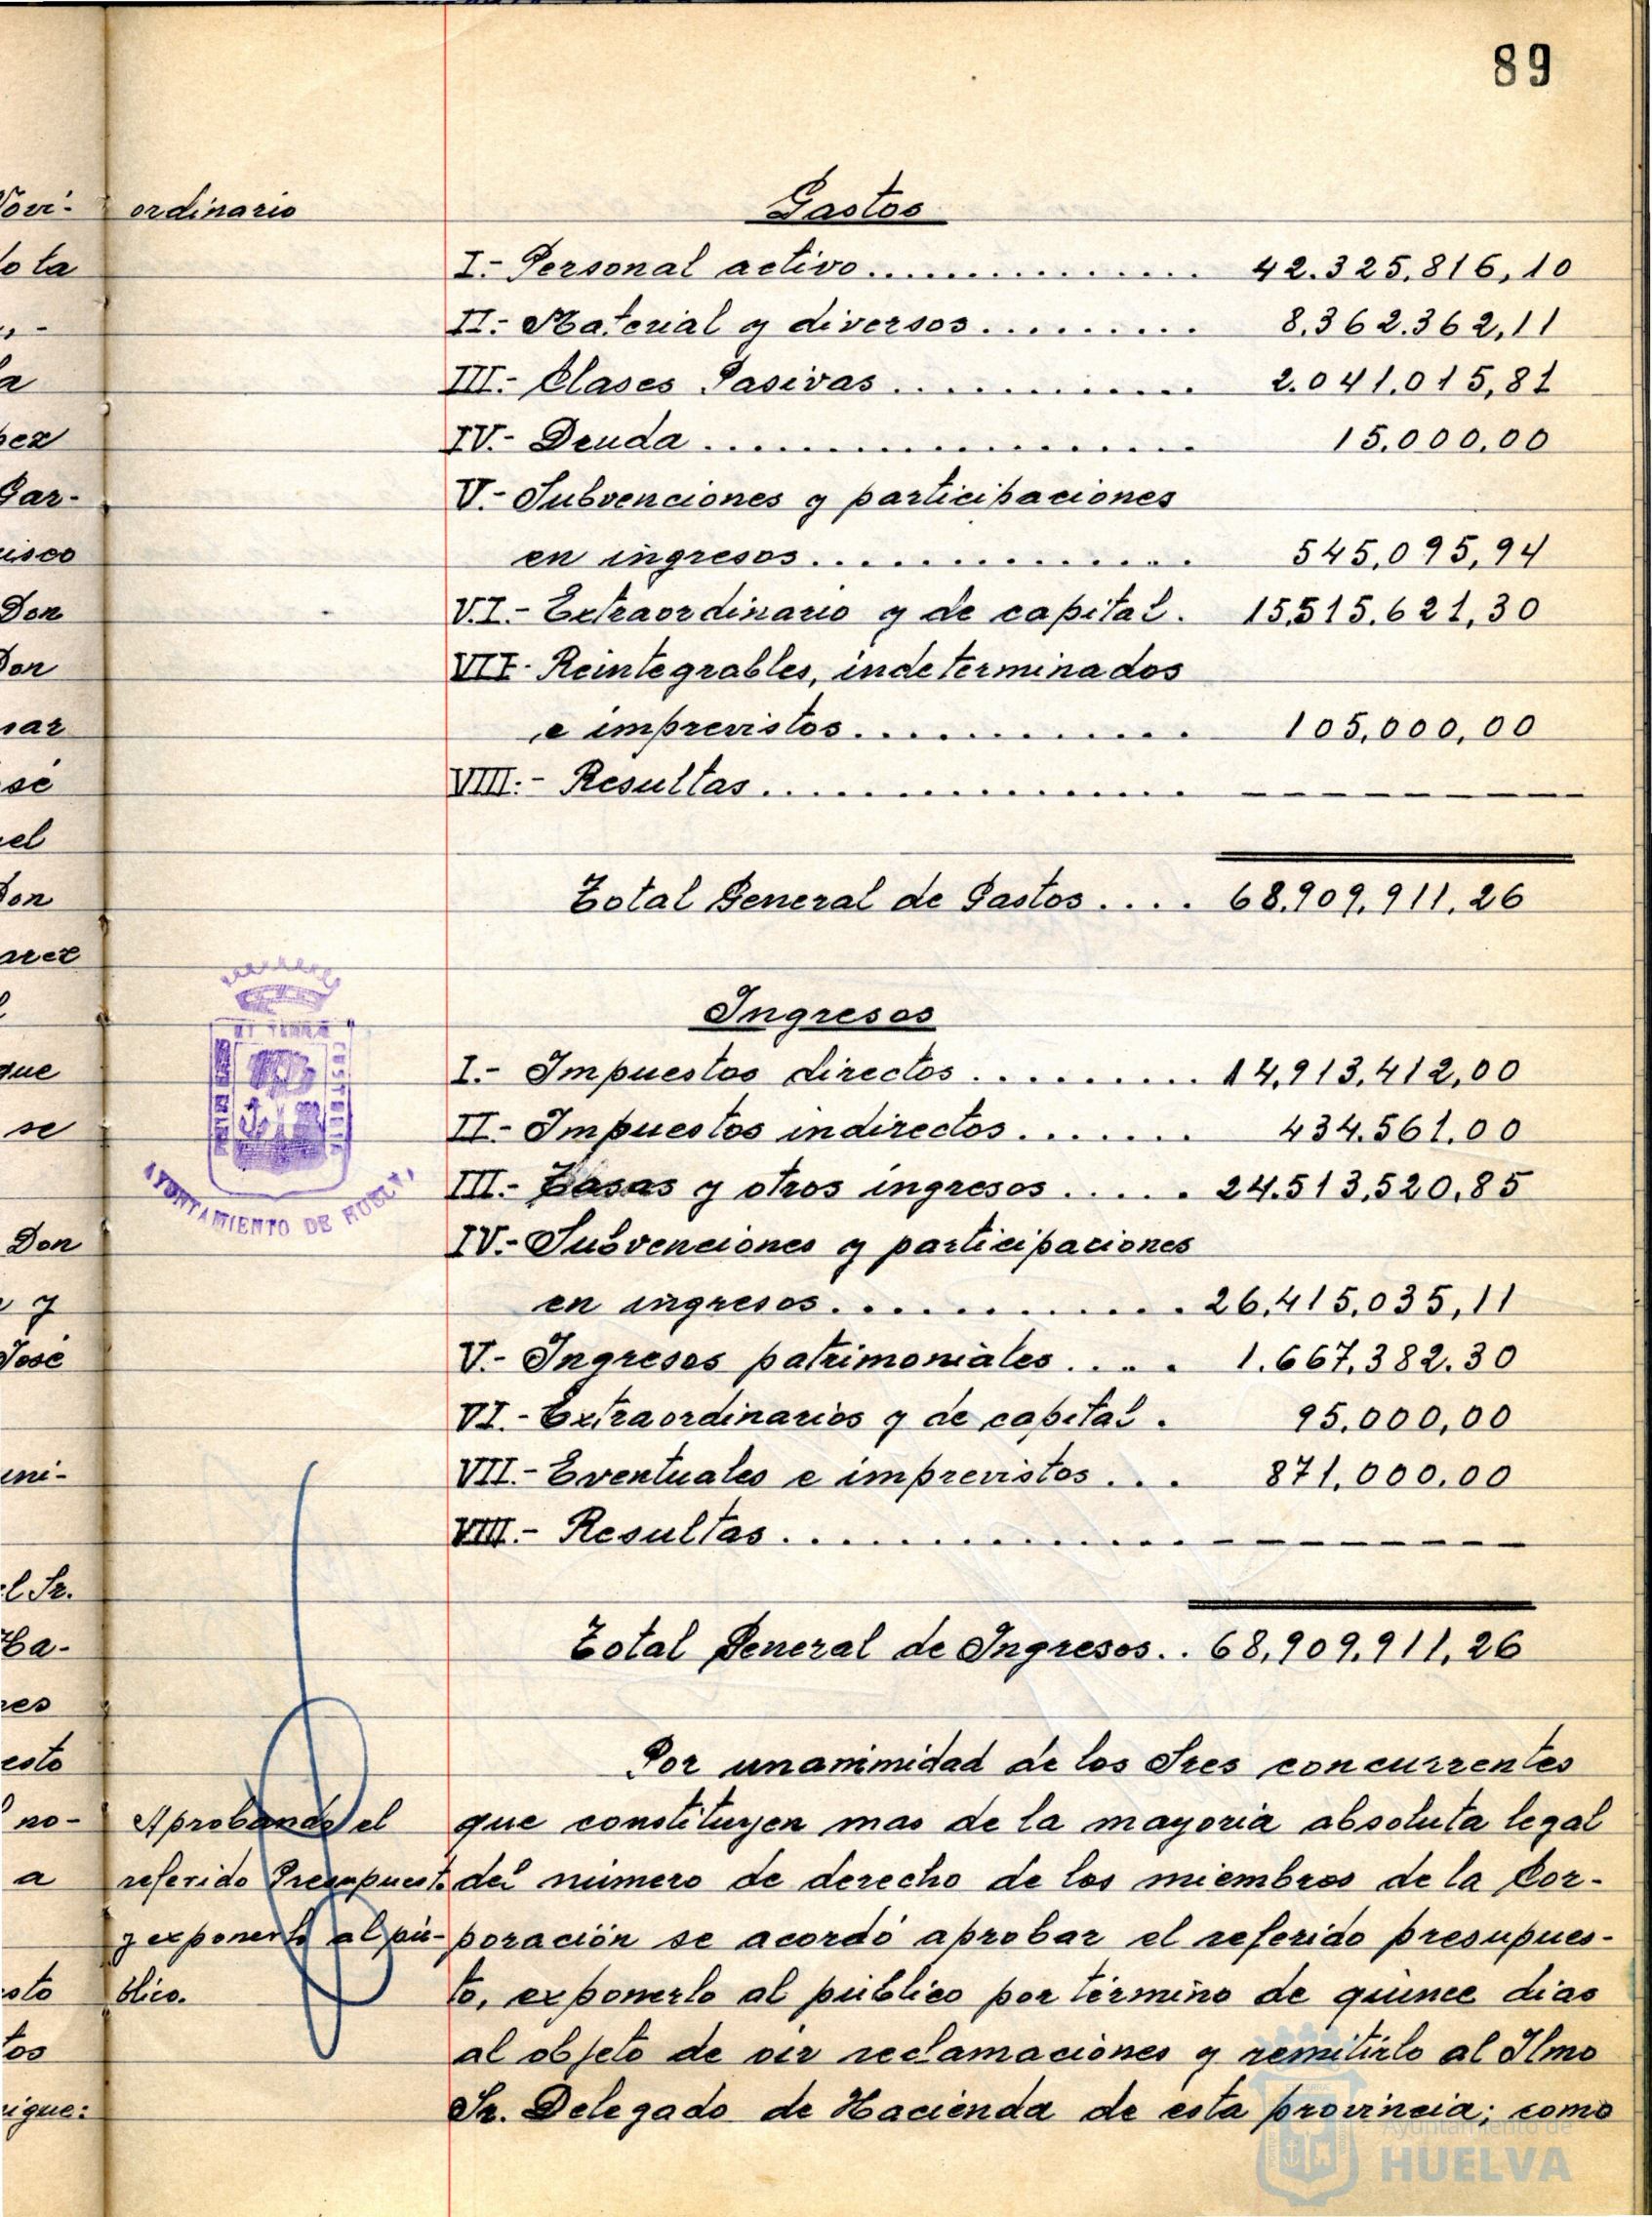 89
ordinario
Gastos
I.- Personal activo............... 42.325.816,10
II.- Material y diversos.......... 8.362.362,11
III.- Clases Pasivas.............. 2.041.015,81
IV.- Deuda.................. 15.000,00
V.- Subvenciones y participaciones
en ingresos............... 545,095,94
V.I.- Extraordinario y de capital. 15,515.621,30
VII- Reintegrables, indeterminados
e imprevistos............. 105,000,00
VIII.- Resultas................ ---------
Total General de Gastos.... 68,909,911,26
Ingresos
I.- Impuestos directos......... 14,913,412,00
II.- Impuestos indirectos....... 434.561,00
III.- Tasas y otros ingresos..... 24.513,520,85
IV.- Subvenciones y participaciones
en ingresos............. 26,415,035,11
V.- Ingresos patrimoniales..... 1.667,382.30
VI.- Extraordinarios y de capital. 95.000,00
VII.- Eventuales e imprevistos... 871,000,00
VIII.- Resultas............... ---------
Total General de Ingresos.. 68,909,911,26
AYUNTAMIENTO DE HUELVA
Por unanimidad de los Sres concurrentes
que constituyen mas de la mayoria absoluta legal
del número de derecho de los miembros de la Cor-
poración se acordó aprobar el referido presupues-
to, exponerlo al público por término de quince dias
al objeto de oir reclamaciones y remitirlo al Ilmo
Sr. Delegado de Hacienda de esta provincia; como
Aprobando el
referido Presupuesto
y exponerlo al pú-
blico.
Ayuntamiento de
HUELVA